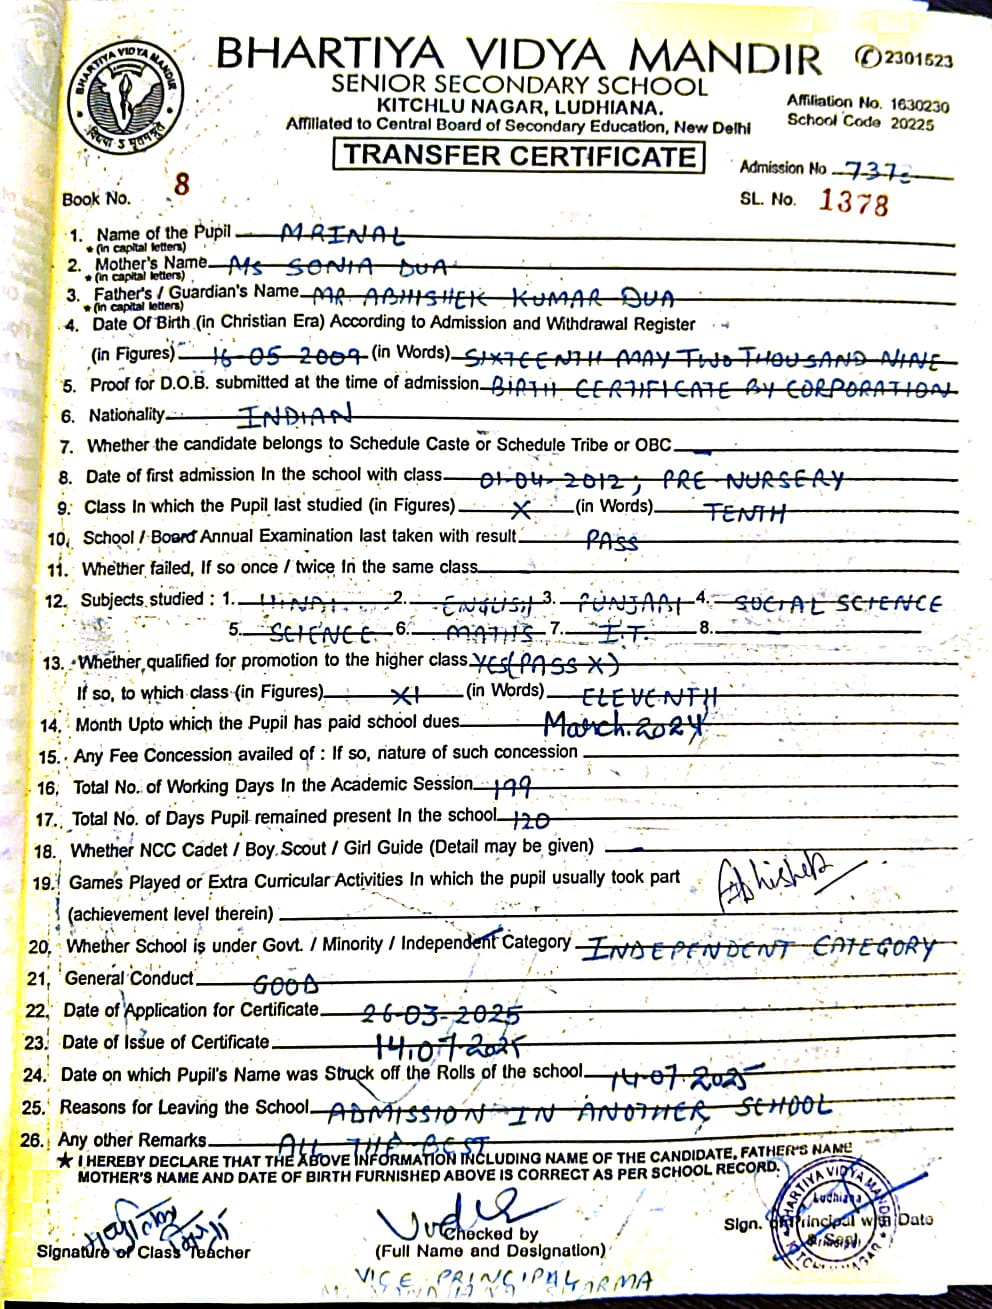 BHARTIYA VIDYA MANDIR ✆2301523
SENIOR SECONDARY SCHOOL
KITCHLU NAGAR, LUDHIANA.
Affiliation No. 1630230
School Code 20225
Affiliated to Central Board of Secondary Education, New Delhi
TRANSFER CERTIFICATE
Admission No 737
Book No. 8
SL. No. 1378
1. Name of the Pupil MRINAL
* (in capital letters)
2. Mother's Name Ms SONIA DUA
* (in capital letters)
3. Father's / Guardian's Name MR. ABHISHEK KUMAR DUA
* (in capital letters)
4. Date Of Birth (in Christian Era) According to Admission and Withdrawal Register
(in Figures) 16-05-2009 (in Words) SIXTEENTH MAY TWO THOUSAND NINE
5. Proof for D.O.B. submitted at the time of admission BIRTH CERTIFICATE BY CORPORATION
6. Nationality INDIAN
7. Whether the candidate belongs to Schedule Caste or Schedule Tribe or OBC
8. Date of first admission In the school with class 01-04-2012; PRE NURSERY
9. Class In which the Pupil last studied (in Figures) X (in Words) TENTH
10. School / Board Annual Examination last taken with result PASS
11. Whether failed, If so once / twice In the same class
12. Subjects studied : 1. HINDI 2. ENGLISH 3. PUNJABI 4. SOCIAL SCIENCE
5. SCIENCE 6. MATHS 7. I.T. 8.
13. Whether qualified for promotion to the higher class YES (PASS X)
If so, to which class (in Figures) XI (in Words) ELEVENTH
14. Month Upto which the Pupil has paid school dues March.2024
15. Any Fee Concession availed of : If so, nature of such concession
16. Total No. of Working Days In the Academic Session 199
17. Total No. of Days Pupil remained present In the school 120
18. Whether NCC Cadet / Boy Scout / Girl Guide (Detail may be given)
19. Games Played or Extra Curricular Activities In which the pupil usually took part Abhishek
(achievement level therein)
20. Whether School is under Govt. / Minority / Independent Category INDEPENDENT CATEGORY
21. General Conduct GOOD
22. Date of Application for Certificate 26-03-2025
23. Date of Issue of Certificate 14.07.2025
24. Date on which Pupil's Name was Struck off the Rolls of the school 14-07-2025
25. Reasons for Leaving the School ADMISSION IN ANOTHER SCHOOL
26. Any other Remarks ALL THE BEST
★ I HEREBY DECLARE THAT THE ABOVE INFORMATION INCLUDING NAME OF THE CANDIDATE, FATHER'S NAME
MOTHER'S NAME AND DATE OF BIRTH FURNISHED ABOVE IS CORRECT AS PER SCHOOL RECORD.
BHARTIYA VIDYA MANDIR
Ludhiana
KITCHLU NAGAR
Signature of Class Teacher
Checked by
(Full Name and Designation)
Sign. of Principal with Date
& Seal
VICE PRINCIPAL